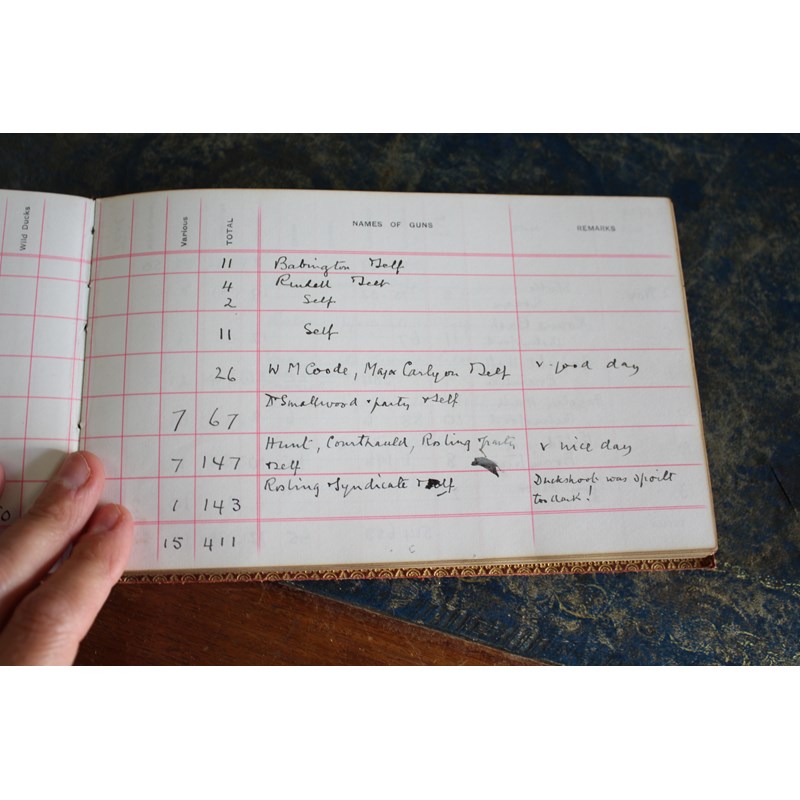 Wild Ducks
Various TOTAL NAMES OF GUNS REMARKS
11 Babington & Self
4 Rendell & Self
2 Self
11 Self
26 W M Coode, Major Carlyon & Self v. good day
Dr Smallwood & party & Self
7 67
Hunt, Courthauld, Rosling & party
7 147 & self v nice day
Rosling & Syndicate & self Duckshoot was spoilt
1 143 too dark!
15 411